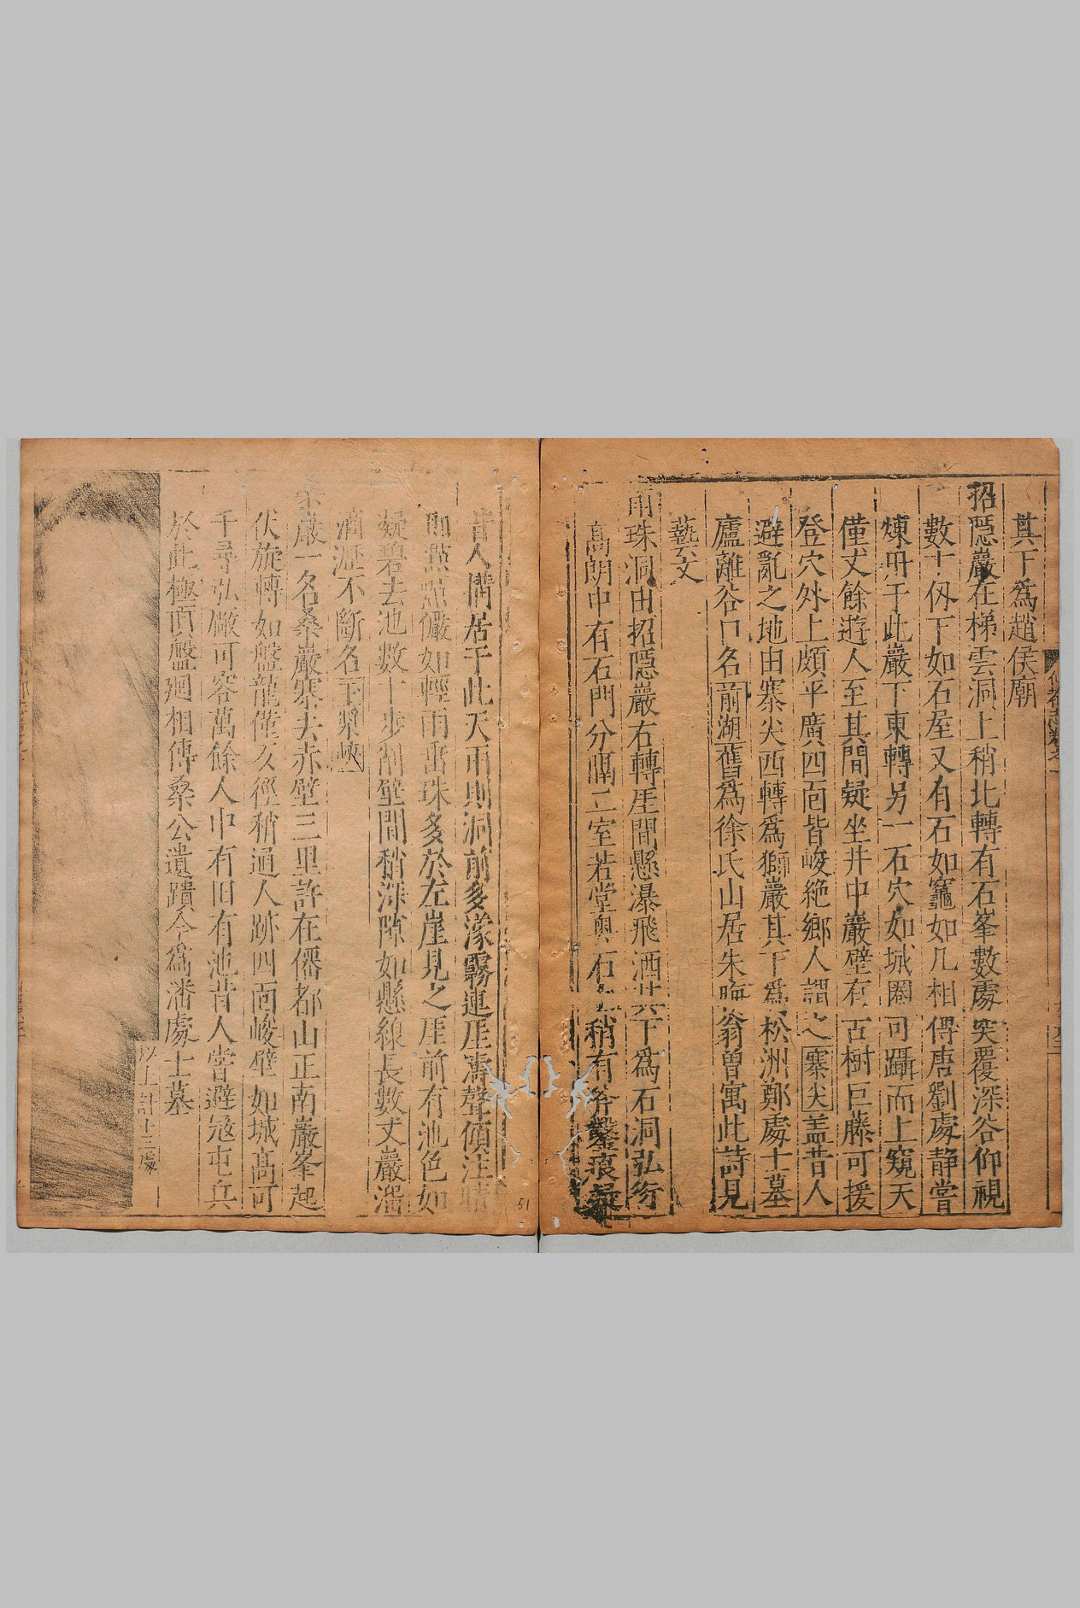 其下爲趙侯廟
招隠巖在梯雲洞上稍北轉有石峯數處突覆深谷仰視
數十仭下如石屋又有石如竈如几相傳唐劉處静嘗
煉丹于此巖下東轉另一石穴如城圏可躡而上窺天
僅丈餘遊人至其間疑坐井中巖壁有古樹巨藤可援
登穴外上頗平廣四面皆峻絶鄉人謂之寨尖盖昔人
避亂之地由寨尖西轉爲獅巖其下爲松洲鄭處士墓
廬離谷口名前湖舊爲徐氏山居朱晦翁曽寓此詩見
藝文
雨珠洞由招隠巖右轉崖間懸瀑飛洒其下爲石洞弘衍
高朗中有石門分隔二室若堂奥石上稍有斧鑿痕疑
昔人搆居于此天雨則洞前多濛霧連崖濤聲傾注晴
則點點儼如輕雨畨珠多於左崖見之崖前有池色如
凝碧去池數十步削壁間稍深隙如懸線長數丈巖溜
滴瀝不斷名下漿峽
巖一名桑巖寨去赤壁三里許在僊都山正南巖峯起
伏旋轉如盤龍僅久徑稍通人跡四面峻壁如城高可
千尋弘敞可容萬餘人中有旧有池昔人嘗避冦屯兵
於此極靣盤廻相傳桑公遺蹟今爲潘處士墓
以上計十三處
51